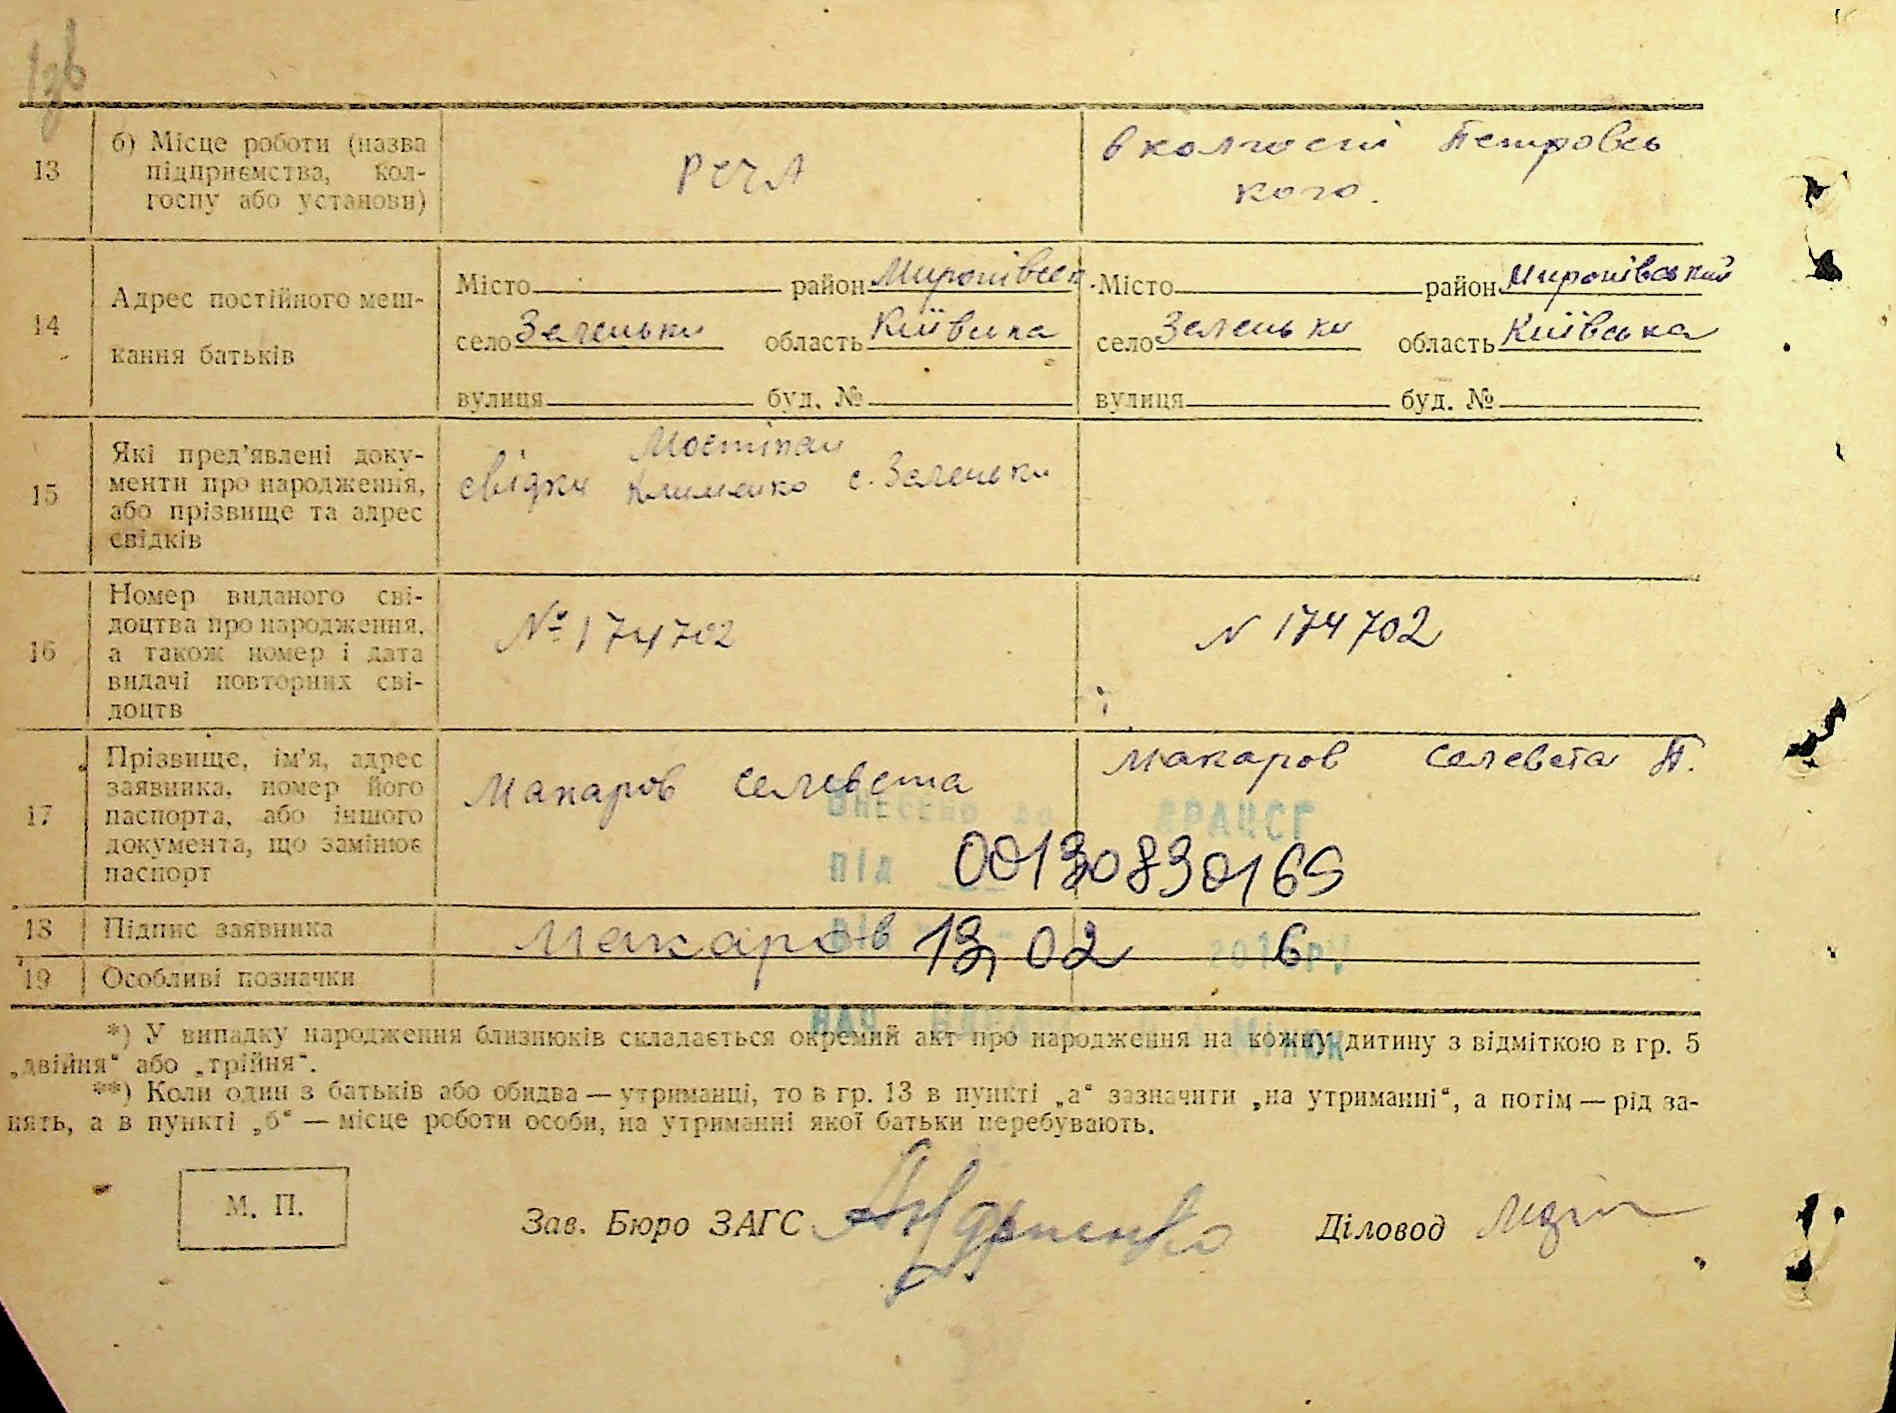 13
б) Місце роботи (назва
підприємства, кол-
госпу або установи)
РСЧА
в колгоспі Петровсь
кого.
14
Адрес постійного меш-
кання батьків
Місто район Миронівськ
село Зеленьки область Київська
вулиця буд. №
Місто район Миронівський
село Зеленьки область Київська
вулиця буд. №
15
Які пред'явлені доку-
менти про народження,
або прізвище та адрес
свідків
Мостіпан
свідки Клименко с. Зеленьки
16
Номер виданого сві-
доцтва про народження,
а також номер і дата
видачі повторних сві-
доцтв
№ 174702
N 174702
17
Прізвище, ім'я, адрес
заявника, номер його
паспорта, або іншого
документа, що замінює
паспорт
Макаров Селевета
Макаров Селевета П.
ВНЕСЕНО ДО ДРАЦСГ
ПІД 00130830165
18
Підпис заявника
Макаров
ВІД 13 02 2016р.
19
Особливі позначки
*) У випадку народження близнюків складається окремий акт про народження на кожну дитину з відміткою в гр. 5
„двійня“ або „трійня“.
**) Коли один з батьків або обидва — утриманці, то в гр. 13 в пункті „а“ зазначити „на утриманні“, а потім — рід за-
нять, а в пункті „б“ — місце роботи особи, на утриманні якої батьки перебувають.
М. П.
Зав. Бюро ЗАГС
Діловод